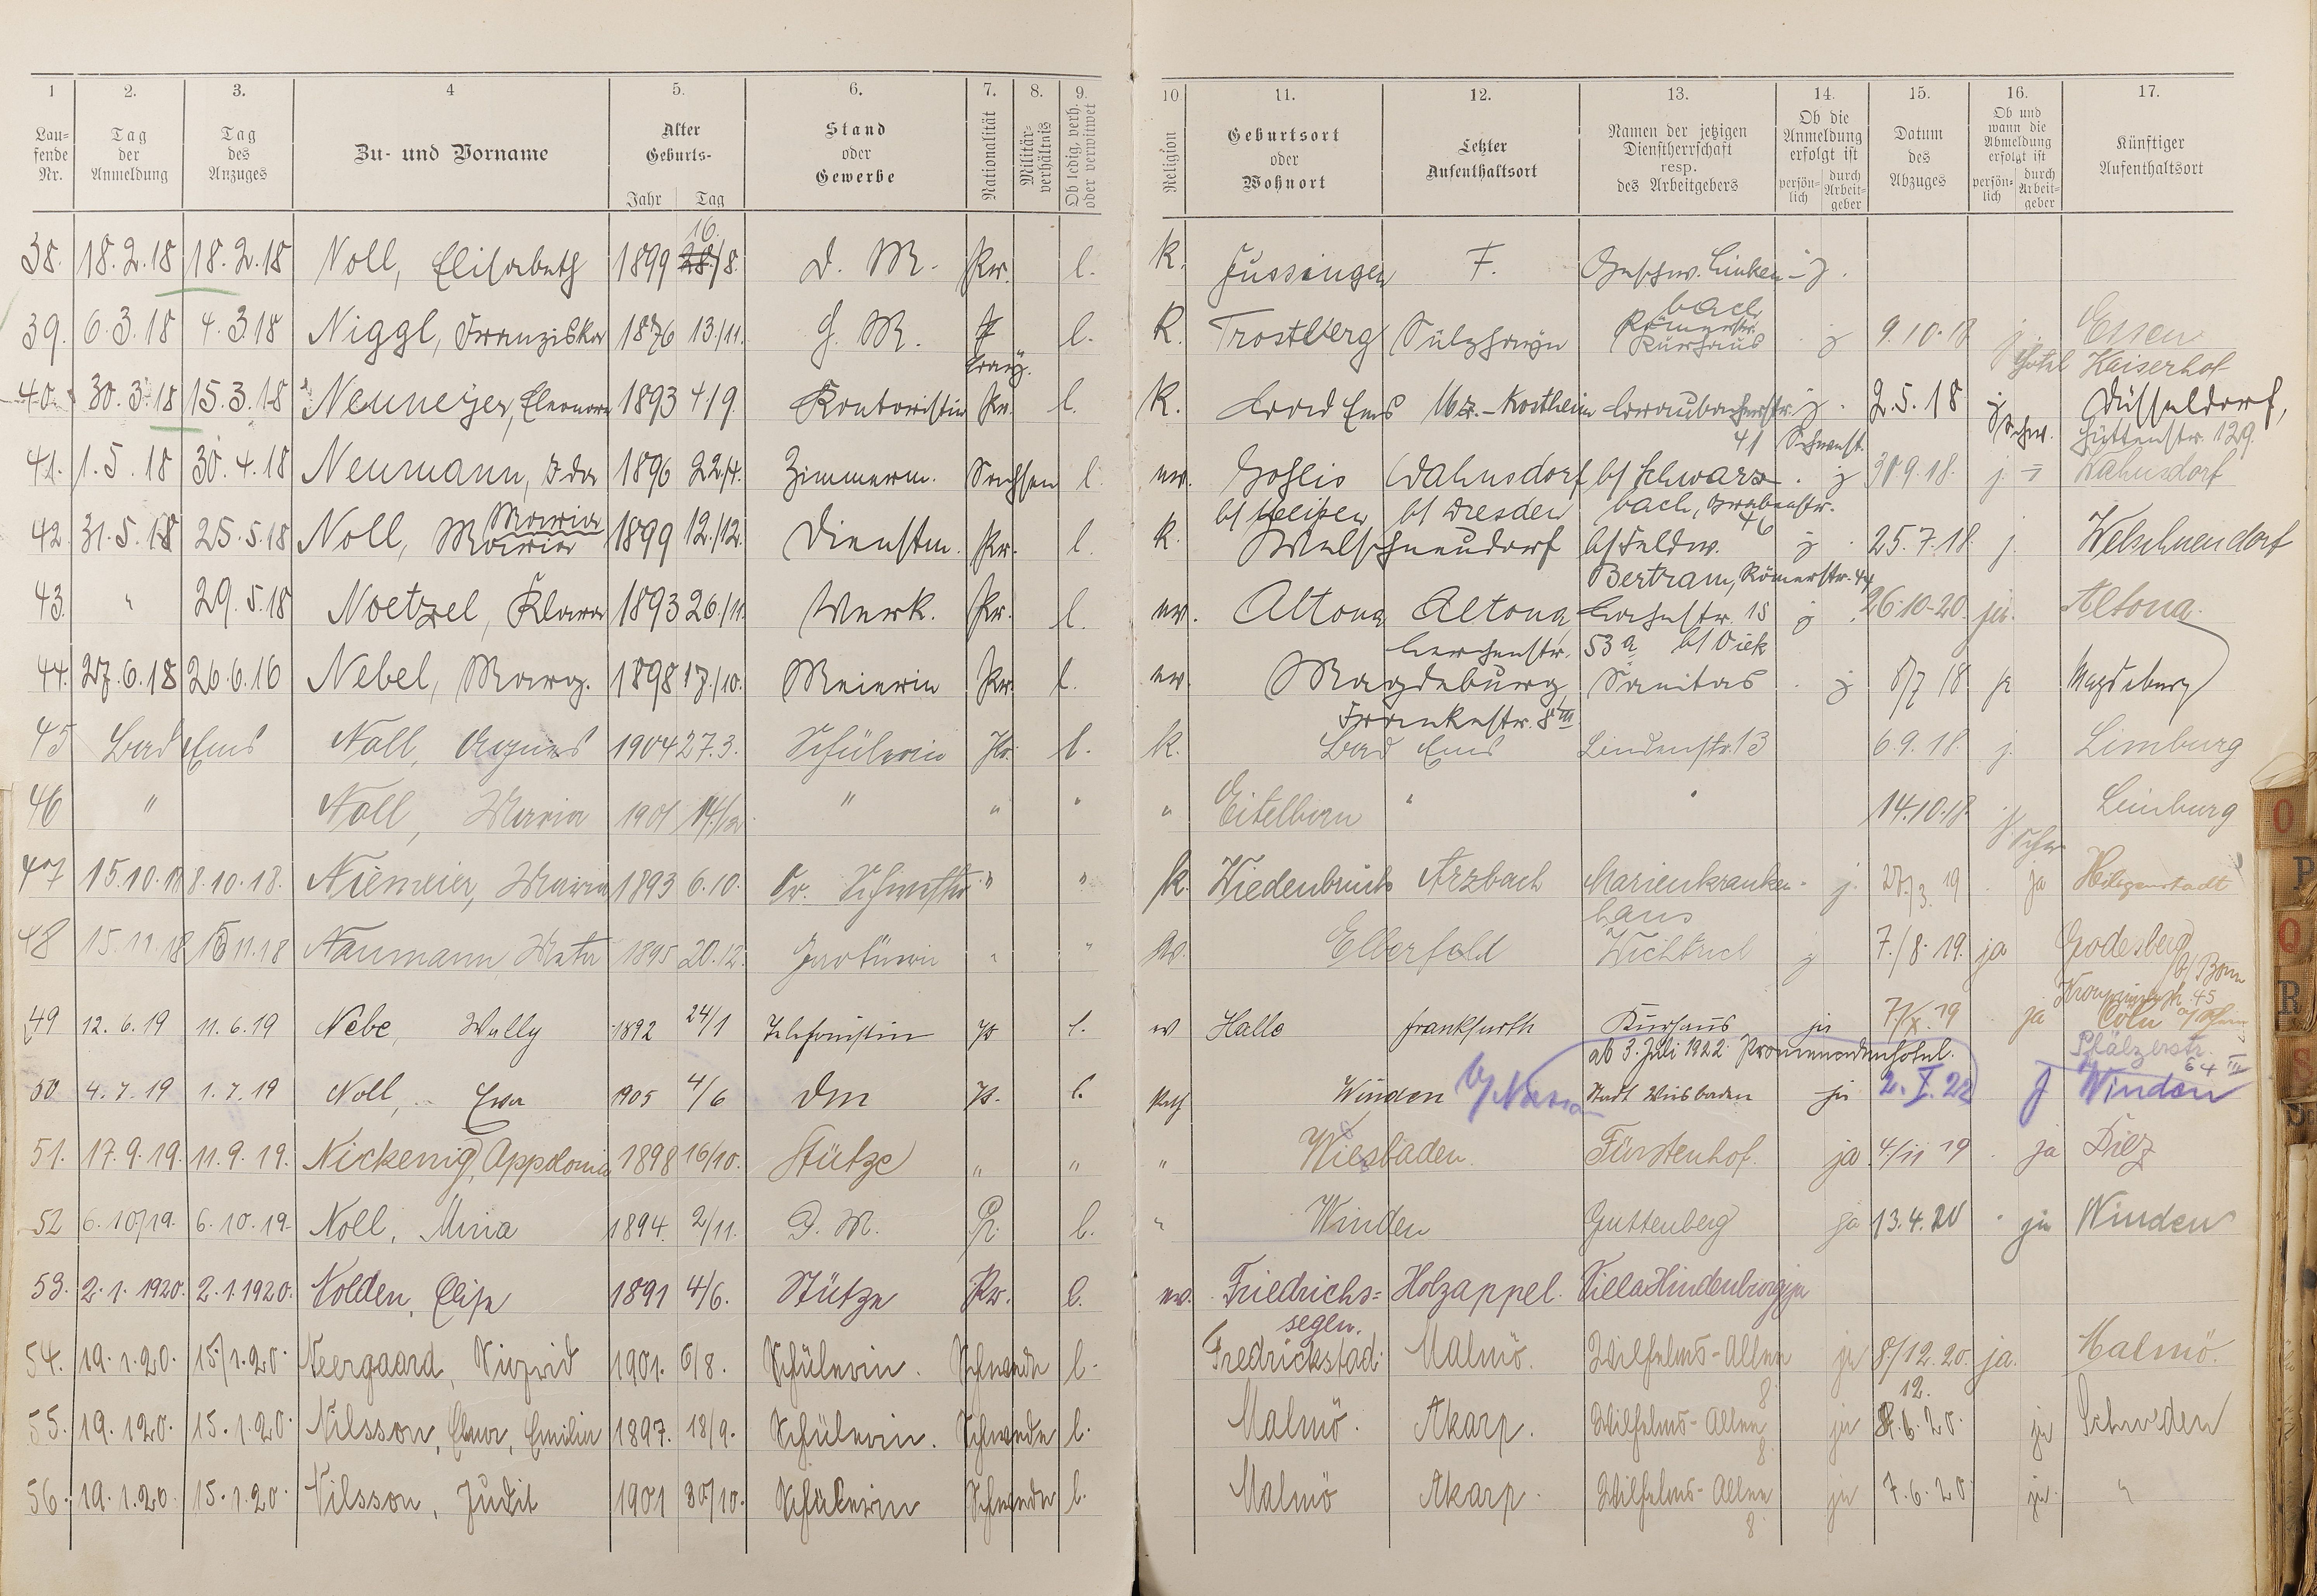 1 2. 3. 4 5. 6. 7. 8. 9. 10 11. 12. 13. 14. 15. 16. 17.
Lau-fende Nr. Tag der Anmeldung Tag des Anzuges Zu- und Vorname Alter Geburts- Jahr Tag Stand oder Gewerbe Nationalität Militär-verhältnis Ob ledig, verh. oder verwitwet Religion Geburtsort oder Wohnort Letzter Aufenthaltsort Namen der jetzigen Dienstherrschaft resp. des Arbeitgebers Ob die Anmeldung erfolgt ist persön-lich durch Arbeit-geber Datum des Abzuges Ob und wann die Abmeldung erfolgt ist persön-lich durch Arbeit-geber Künftiger Aufenthaltsort
16.
38. 18.2.18 18.2.18 Noll, Elisabeth 1899 28./8. D. M. Pr. l. K. Fussingen F. Geschw. Linken-j.
bach
39. 6.3.18 4.3.18 Niggl, Franziska 1876 13./11. G. M. l. K. Trostberg Sülzhayn Römerstr. Kurhaus j 9.10.18 j Essen
Bay. Hotel Kaiserhof
40. 30.3.18 15.3.18 Neumeyer, Eleonore 1893 4./9. Kontoristin Pr. l. K. Bad Ems Mz.-Kostheim Braubacherstr. j. 2.5.18 j Düsseldorf,
41 Schw. Hüttenstr. 129.
41. 1.5.18 30.4.18 Neumann, Ida 1896 22./4. Zimmerm. Sachsen l. ev. Gohlis Wahnsdorf b/ Schwarz- j 30.9.18. j. Wahnsdorf
b/ Meißen b/ Dresden bach, Grabenstr.
Maria 46
42. 31.5.18 25.5.18 Noll, Maria 1899 12./12. Dienstm. Pr. l. K. Welschneudorf b/ Feldw. j 25.7.18. j. Welschneudorf
Bertram, Römerstr. 44
43. " 29.5.18 Noetzel, Klara 1893 26./11. Verk. Pr. l. ev. Altona Altona Bahnstr. 15 j 26.10.20. ja. Altona.
Lerchenstr. 53a b/ Diek
44. 27.6.18 26.6.16 Nebel, Marg. 1898 17./10. Meierin Pr. l. ev. Magdeburg, Sanitas j 8/7 18 ja Magdeburg
Frankestr. 8 III
45 Bad Ems Noll, Agnes 1904 27.3. Schülerin Pr. l. k. Bad Ems Lindenstr. 13 6.9.18. j. Limburg
46 " Noll, Maria 1901 14./12 " " " " Eitelborn " " 14.10.18. Limburg
47 15.10.18 8.10.18. Niemeier, Maria 1893 6.10. Schwester " " k. Wiedenbrück Arzbach Marienkranken- j. 27./3. 19 ja Heiligenstadt
haus
48 15.11.18 15.11.18 Naumann, Meta 1895 20.12. Gärtnerin " " ev. Elberfeld Wichtrich j 7./8.19. ja Godesberg
b/ Bonn
Kronprinzenstr. 45
49 12.6.19 11.6.19 Nebe, Wally 1892 24/1 Telefonistin Pr l. ev Halle Frankfurth Kurhaus ja 7./X.19 ja Cöln a/ Rhein
ab 3. Juli 1922 Promenadenhotel. Pfälzerstr. 64 III
50 4.7.19 1.7.19 Noll, Eva 1905 4/6 Dm Pr. l. Kath Winden b/ Nassau Stadt Wiesbaden ja 2.X.22 j Winden
51. 17.9.19. 11.9.19. Nickenig, Appolonia 1898 16/10. Stütze " " " Wiesbaden. Fürstenhof. ja 4./11 19 ja Diez
52 6.10.19. 6.10.19. Noll, Mina 1894. 2/11. D. M. Pr. l. " Winden Guttenberg ja 13.4.20 ja Winden
53. 2.1.1920. 2.1.1920. Nolden, Elise 1891 4/6. Stütze Pr. l. ev. Friedrichs= Holzappel. Villa Hindenburg ja
segen.
54. 19.1.20. 15/1.20. Neergaard, Sigrid 1901. 6/8. Schülerin. Schwede l. Fredrickstad. Malmö. Wilhelms-Allee ja 8/12.20. ja. Malmö.
8. 12.
55. 19.1.20. 15.1.20. Nilsson, Elna, Emilia 1897. 18/9. Schülerin. Schwede l. Malmö. Akarp. Wilhelms-Allee ja 8.6.20. ja Schweden
8.
56. 19.1.20. 15.1.20. Nilsson, Judit 1901 30/10. Schülerin Schwede l. Malmö Akarp. Wilhelms-Allee ja 7.6.20. ja. "
8.
O
P
Q
R
S